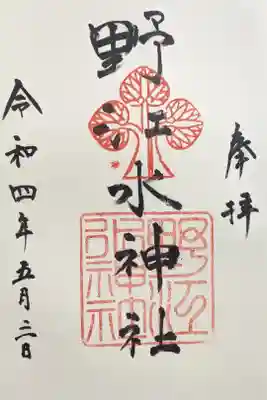 奉拝
野江水神社
野江水神社
令和四年五月三日